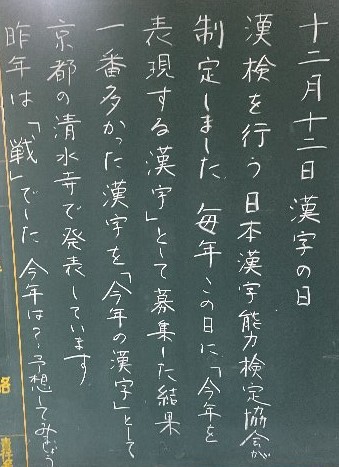 十二月十二日 漢字の日
漢検を行う日本漢字能力検定協会が
制定しました 毎年この日に「今年を
表現する漢字」として募集した結果
一番多かった漢字を「今年の漢字」として
京都の清水寺で発表しています
昨年は「戦」でした 今年は？予想してみよう